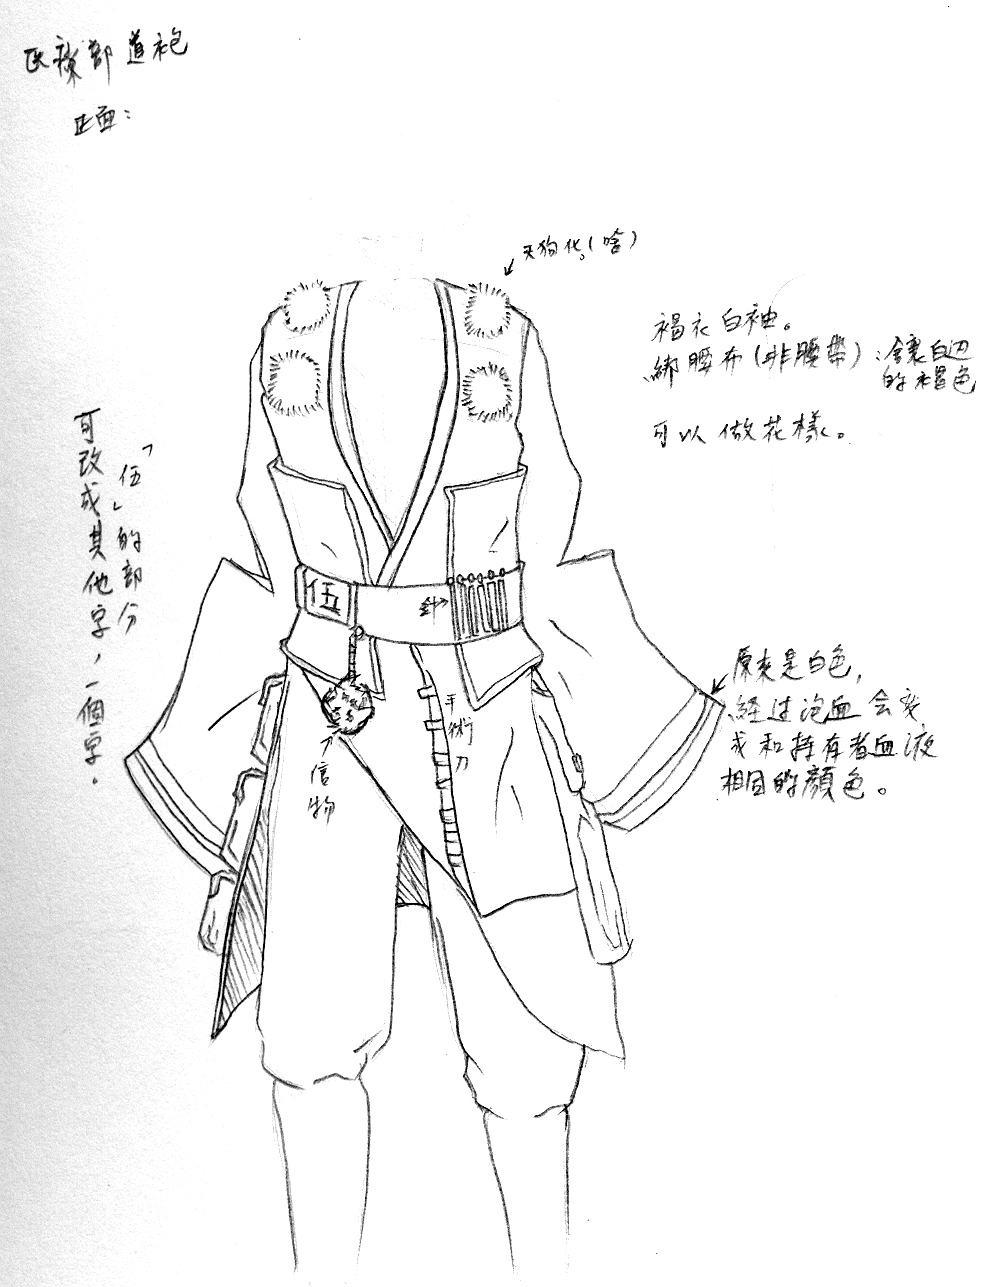 医療部道袍
正面：
天狗化。（啥）
褐衣白袖。
綁腰布（非腰帶）：鑲白边
的褐色
可以做花樣。
「伍」的部分
可改成其他字，一個字。
伍
針
手術刀
信物
原來是白色，
経过泡血会变
成和持有者血液
相同的顏色。